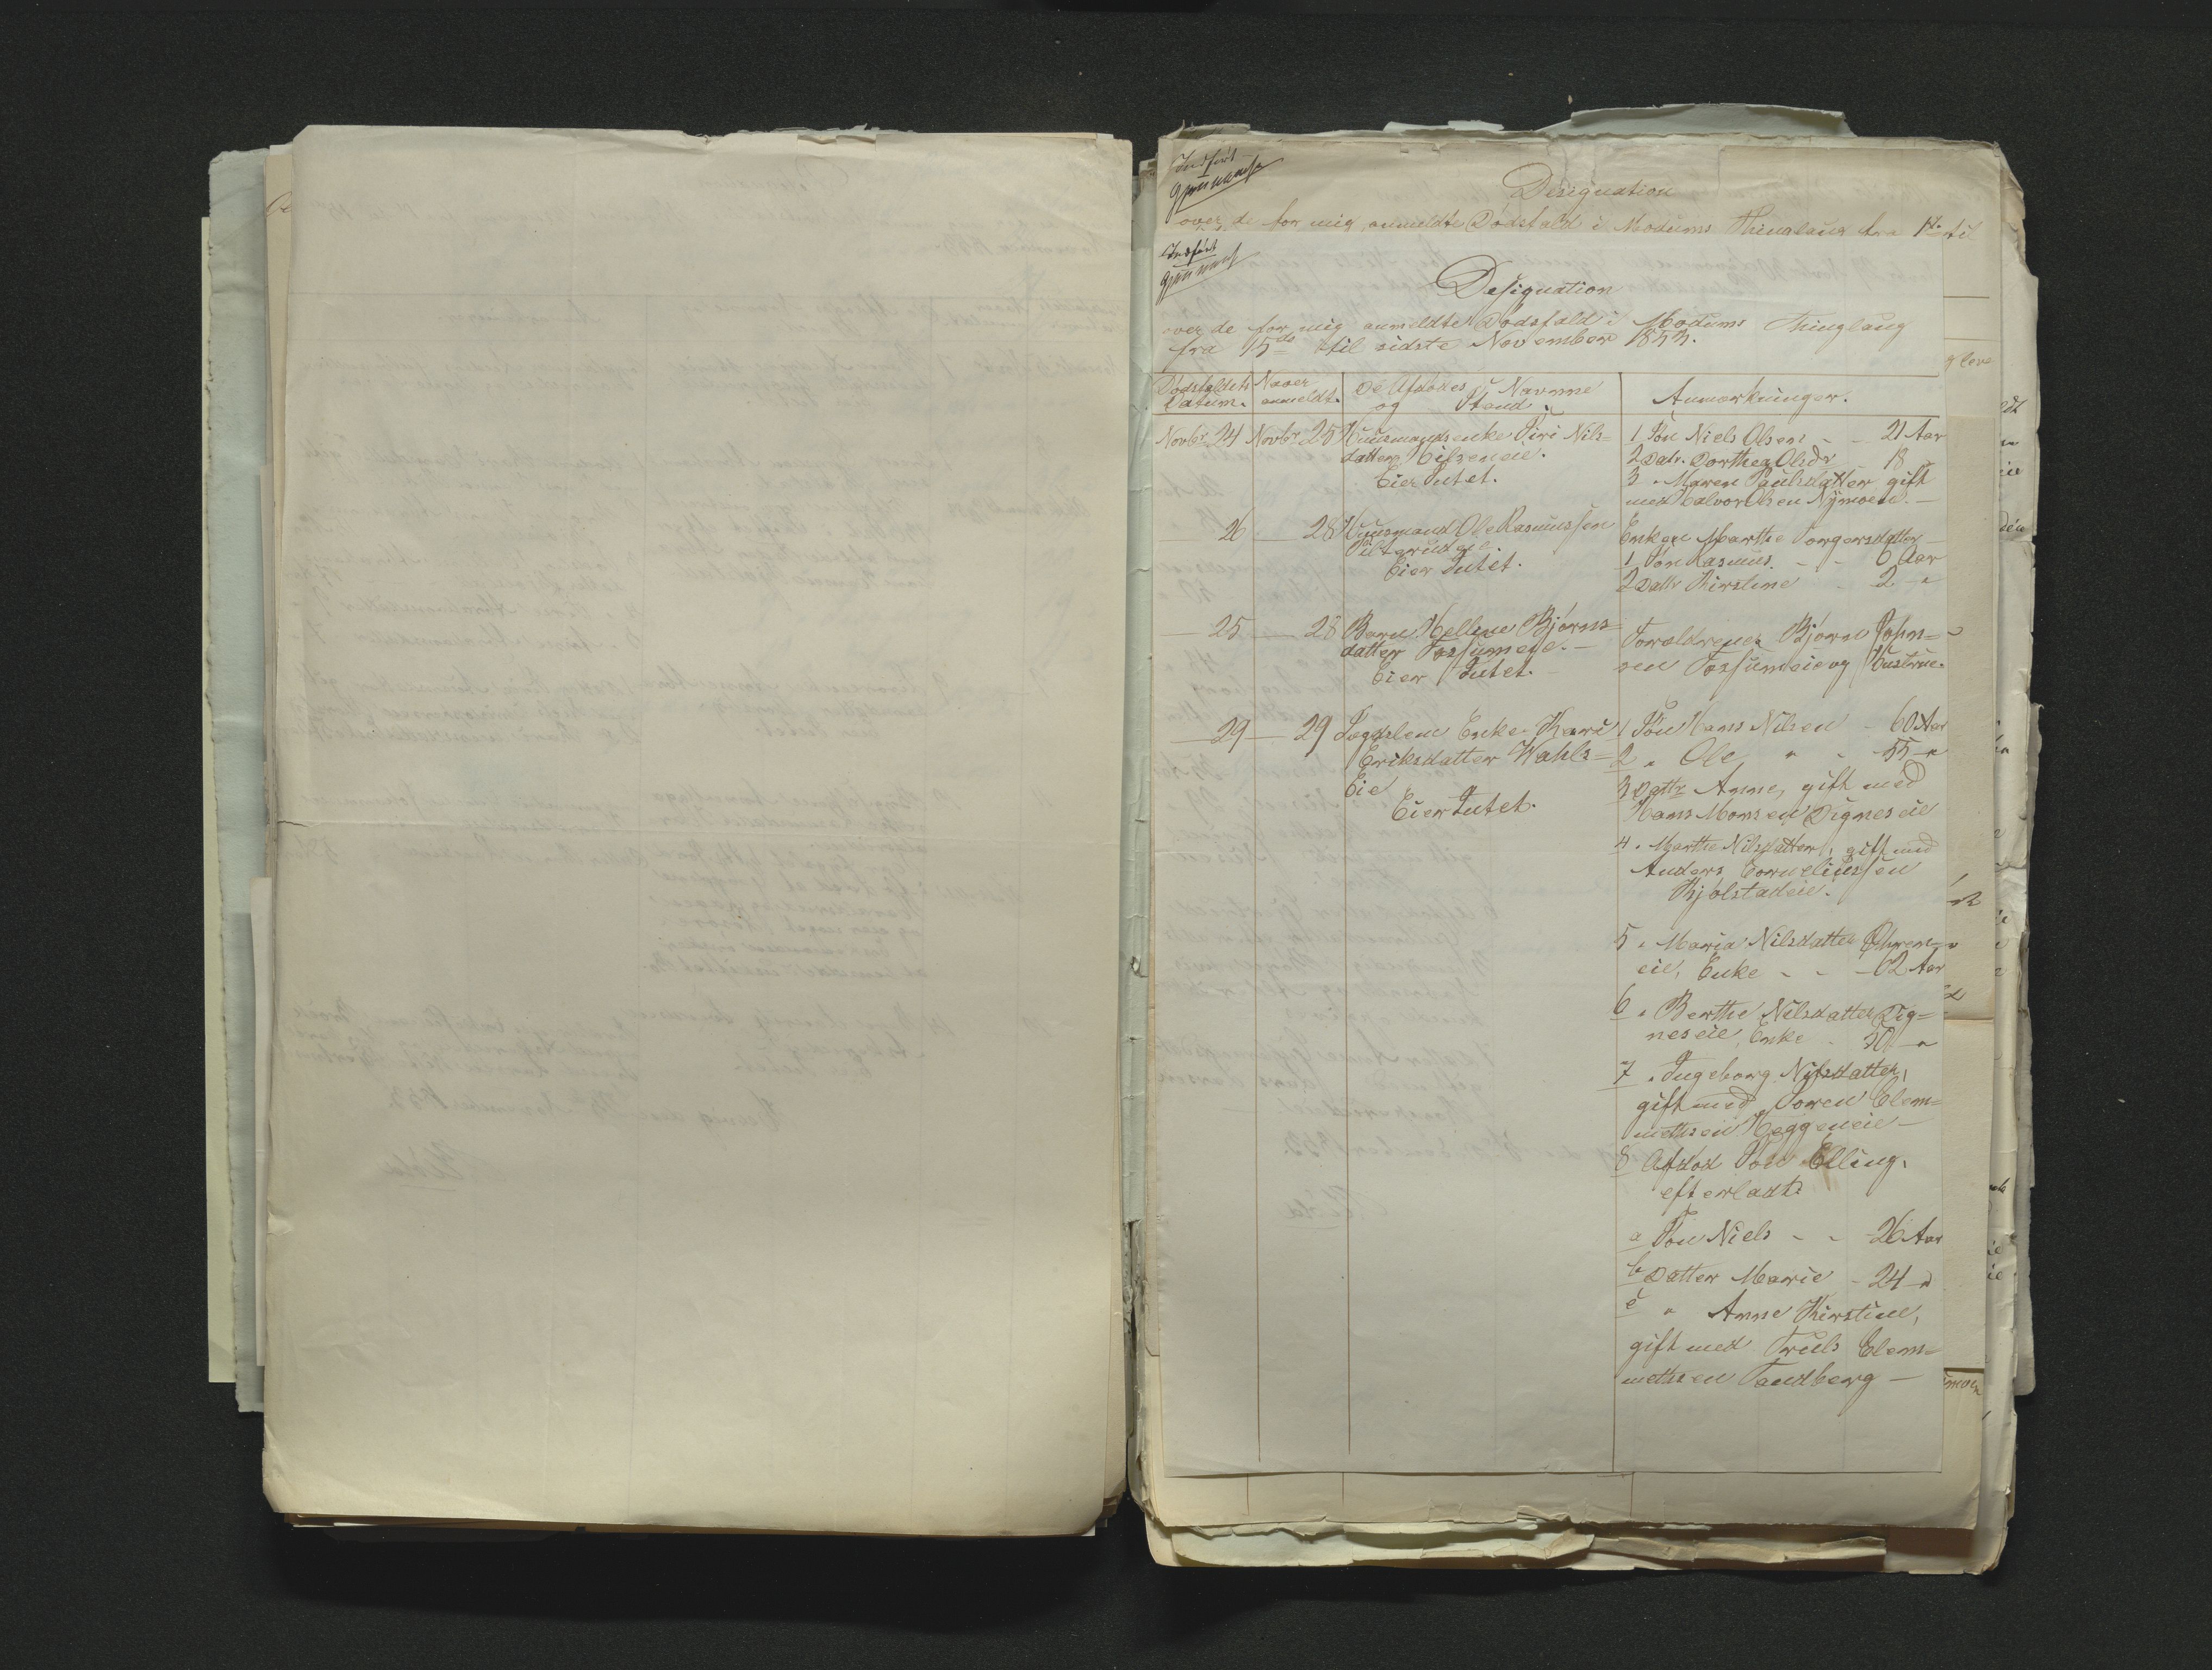 Indført
Designation
over de for mig anmeldte Dødsfald i Modums Thinglaug fra 1ste til
Indført
Designation
over de for mig anmeldte Dødsfald i Modums Thinglaug
fra 15de til sidste November 1853.
Dødsfaldets Datum.
Naaer anmeldt.
De Afdødes Navne og Stand.
Anmærkninger.
Novbr 24 Novbr 25 Huusmandsenke Siri Nils=
datter Hilseneie.
Eier Intet.
1 Søn Niels Olsen - - 21 Aar
2 Datr. Dorthea Olsdr 18 "
3 " Maren Paulsdatter gift
med Halvor Olsen Nymoen. -
— 26 — 28 Huusmand Ole Rasmussen
Eier Intet.
Enken Marthe Torgersdatter
1 Søn Rasmus. - - 6 Aar
2 Dattr Kirstine - 2 - "
— 25 — 28 Barn Helline Bjørns=
datter Fossumeie. -
Eier Intet. -
Forældrene Bjørn John=
sen Fossumeie og Hustrue.
— 29 — 29 Lægdslem Enke Kari
Eriksdatter Wahls=
Eie
Eier Intet.
1 Søn Hans Nilsen - 60 Aar
2 " Ole " - 55 - "
3 Dattr Anne, gift med
Hans Monsen Digneseie
4 " Marthe Nilsdatter, gift med
Anders Corneliussen
Kjølstadeie.
5 " Maria Nilsdatter Øhren=
eie, Enke - - - 62 Aar
6 " Berthe Nilsdatter Dig=
neseie, Enke - 50 - "
7 " Ingeborg Nilsdatter,
gift med Søren Clem=
methsen Heggeneie -
8 Afdød Søn Elling,
efterladt:
a Søn Niels - - 26 Aar
b Datter Marie - 24 - "
c " Anne Kirstine,
gift med Truls Clem=
methsen Sandberg -